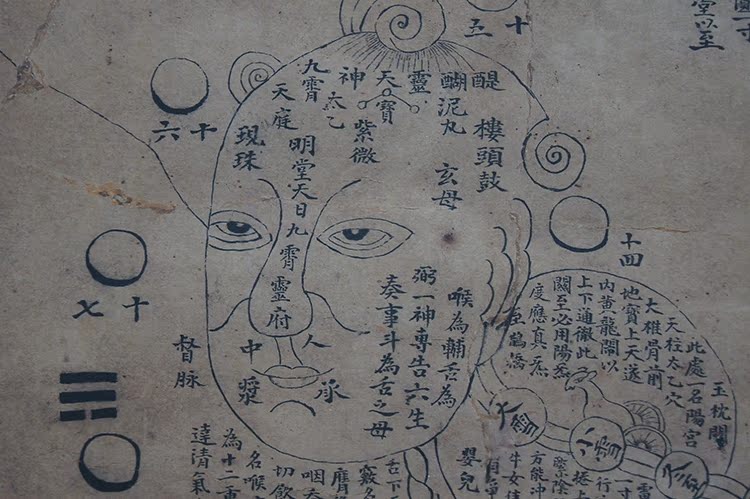 堂以至
十五
十六
十七
十四
醍醐
靈
天寶
神
太乙
九霄
天庭
泥丸
樓頭鼓
玄母
紫微
現珠
明堂天日九霄靈府
喉為輔舌為
弼一神專告六生
奏事斗為舌之母
人中
承漿
督脈
玉枕關
此處一名陽宮
天柱太乙穴
大椎骨前
地寶上天遂
上下通徹此
關至必用陽炁
度應真炁
鵲橋
大雪
小雪
嬰兒
舌下
竅名
切飲
名喉
為十二重
達清氣